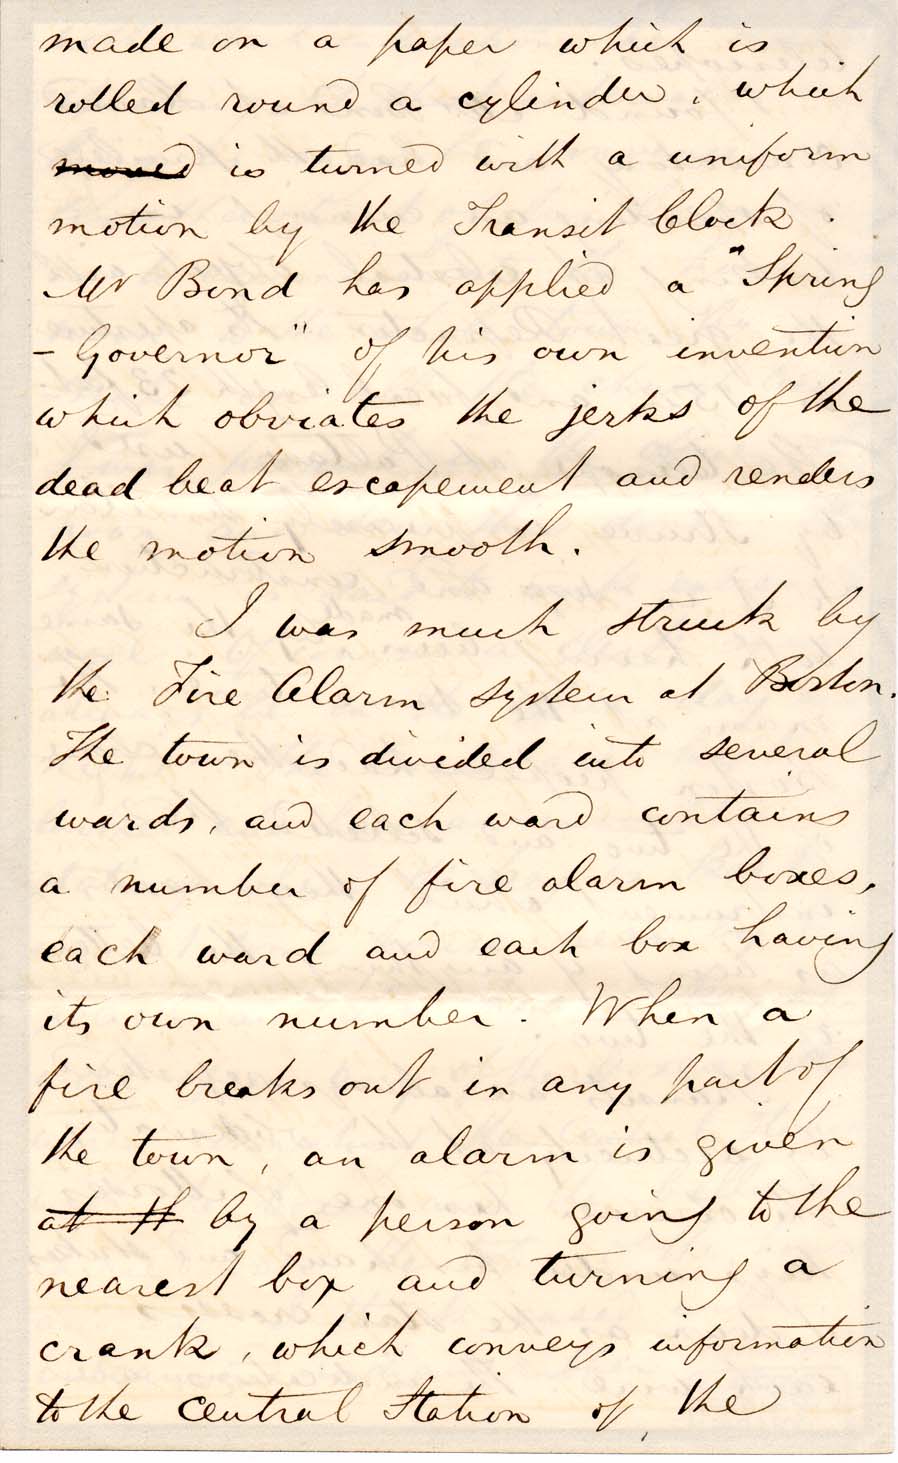 made on a paper which is
rolled round a cylinder, which
moved is turned with a uniform
motion by the Transit Clock.
Mr Bond has applied a "Spring
- Governor" of his own invention
which obviates the jerks of the
dead beat escapement and renders
the motion smooth.
I was much struck by
the Fire Alarm system at Boston.
The town is divided into several
wards, and each ward contains
a number of fire alarm boxes,
each ward and each box having
its own number. When a
fire breaks out in any part of
the town, an alarm is given
at th by a person going to the
nearest box and turning a
crank, which conveys information
to the Central Station of the